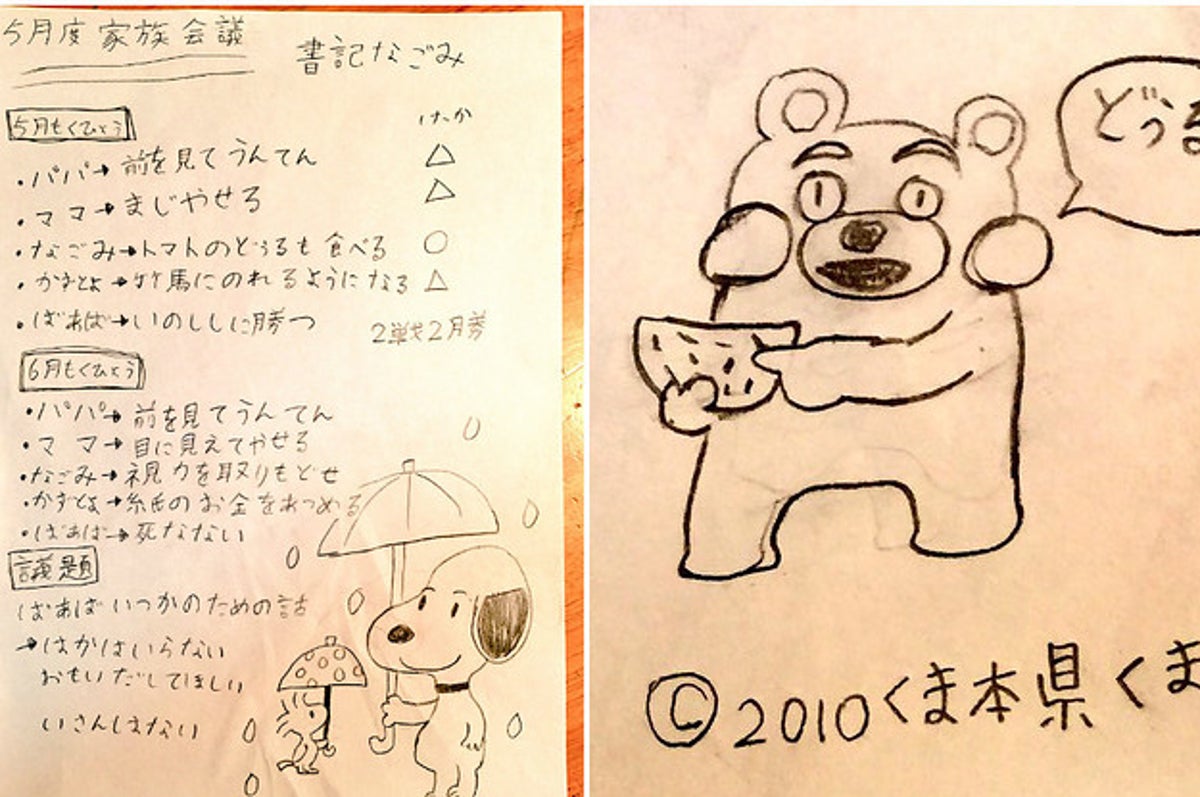 5月度 家族会議
書記なごみ
5月もくひょう
けっか
・パパ→前を見てうんてん △
・ママ→まじやせる △
・なごみ→トマトのどぅるも食べる ○
・かずとよ→竹馬にのれるようになる △
・ばぁば→いのししに勝つ 2戦2月勝
6月もくひょう
・パパ→前を見てうんてん
・ママ→目に見えてやせる
・なごみ→視力を取りもどせ
・かずとよ→紙のお金をあつめる
・ばぁば→死なない
議題
ばぁばいつかのための話
→はかはいらない
おもいだしてほしい
いさんはない
どぅる
©2010くま本県くま